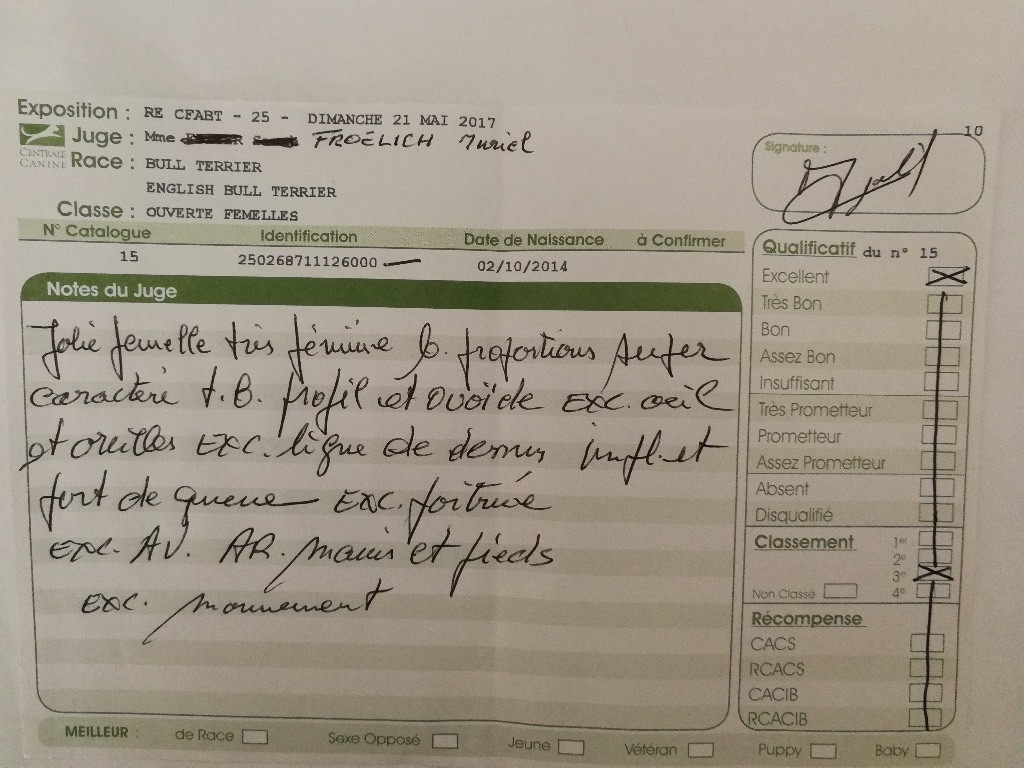 10
Exposition : RE CFABT - 25 - DIMANCHE 21 MAI 2017
Juge : Mme FROELICH Muriel
CENTRALE CANINE
Race : BULL TERRIER
ENGLISH BULL TERRIER
Classe : OUVERTE FEMELLES
Signature :
N° Catalogue Identification Date de Naissance à Confirmer
15 250268711126000 02/10/2014
Notes du Juge
Jolie femelle très féminine b. proportions super
caractère t.b. profil et ovoïde exc. oeil
et oreilles exc. ligne de dessus et
port de queue exc. poitrine
exc. AV. AR. mains et pieds
exc. mouvement
Qualificatif du n° 15
Excellent
Très Bon
Bon
Assez Bon
Insuffisant
Très Prometteur
Prometteur
Assez Prometteur
Absent
Disqualifié
Classement 1er
2e
3e
Non Classé 4e
Récompense
CACS
RCACS
CACIB
RCACIB
MEILLEUR : de Race Sexe Opposé Jeune Vétéran Puppy Baby